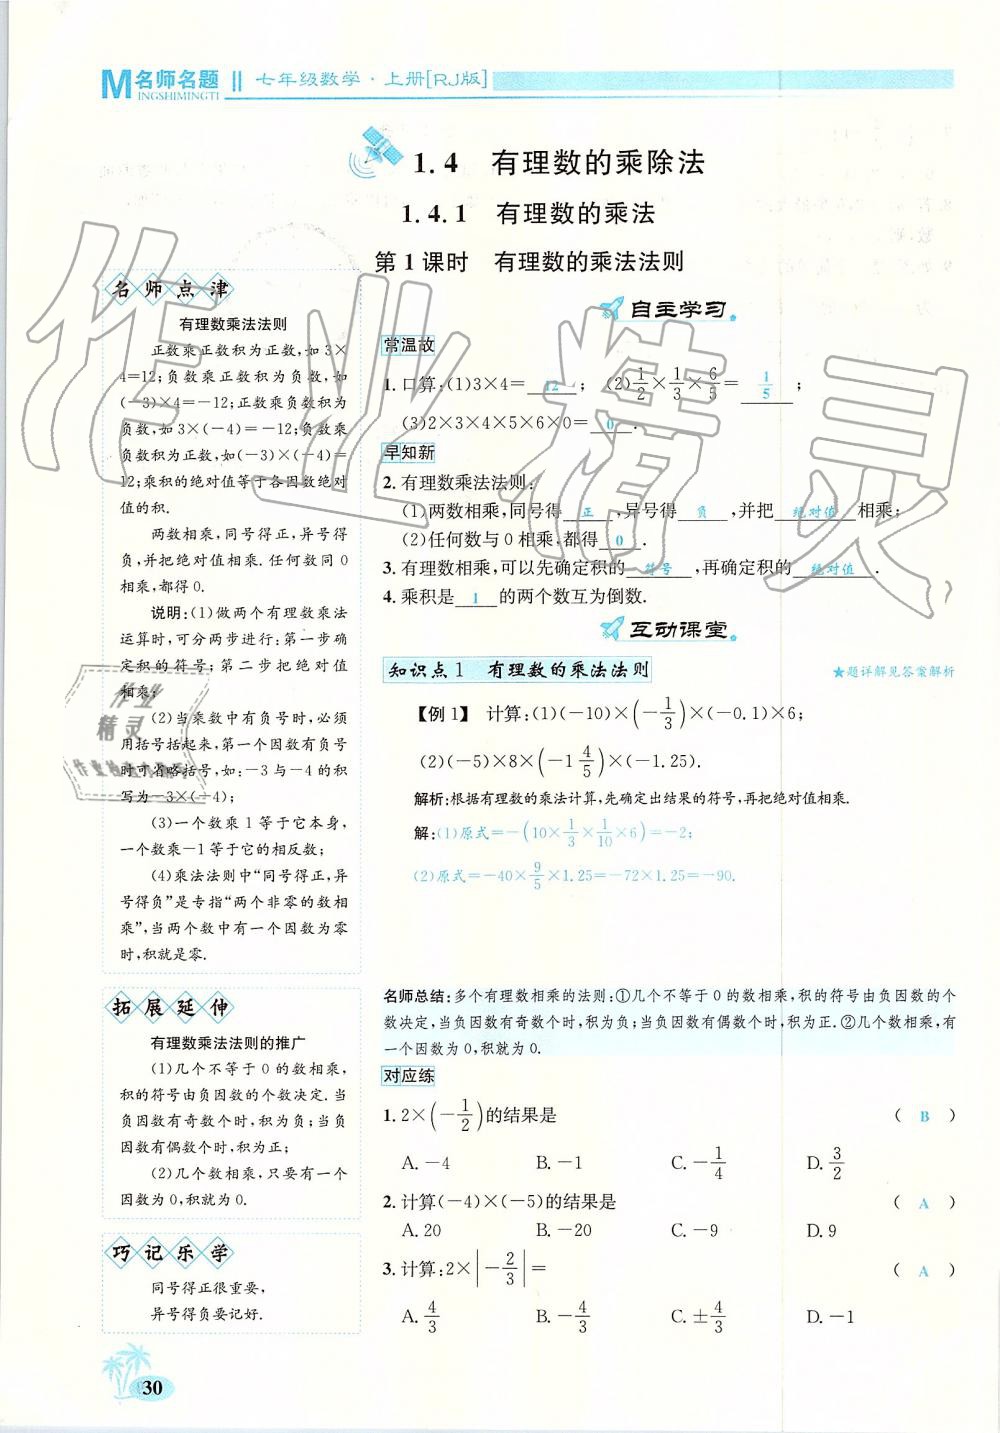 M名师名题
INGSHIMINGTI
七年级数学·上册[RJ版]
1.4 有理数的乘除法
1.4.1 有理数的乘法
第1课时 有理数的乘法法则
名师点津
有理数乘法法则
正数乘正数积为正数,如3×
4=12;负数乘正数积为负数,如
(-3)×4=-12;正数乘负数积为
负数,如3×(-4)=-12;负数乘
负数积为正数,如(-3)×(-4)=
12;乘积的绝对值等于各因数绝对
值的积.
两数相乘,同号得正,异号得
负,并把绝对值相乘.任何数同0
相乘,都得0.
说明:(1)做两个有理数乘法
运算时,可分两步进行:第一步确
定积的符号;第二步把绝对值
相乘;
(2)当乘数中有负号时,必须
用括号括起来,第一个因数有负号
时可省略括号,如:-3与-4的积
写为-3×(-4);
(3)一个数乘1等于它本身,
一个数乘-1等于它的相反数;
(4)乘法法则中“同号得正,异
号得负”是专指“两个非零的数相
乘”,当两个数中有一个因数为零
时,积就是零.
拓展延伸
有理数乘法法则的推广
(1)几个不等于0的数相乘,
积的符号由负因数的个数决定.当
负因数有奇数个时,积为负;当负
因数有偶数个时,积为正;
(2)几个数相乘,只要有一个
因数为0,积就为0.
巧记乐学
同号得正很重要,
异号得负要记好.
自主学习
常温故
1.口算:(1)3×4=12; (2)1/2×1/3×6/5=1/5;
(3)2×3×4×5×6×0=0.
早知新
2.有理数乘法法则:
(1)两数相乘,同号得正,异号得负,并把绝对值相乘;
(2)任何数与0相乘,都得0.
3.有理数相乘,可以先确定积的符号,再确定积的绝对值.
4.乘积是1的两个数互为倒数.
互动课堂
知识点1 有理数的乘法法则
★题详解见答案解析
【例1】 计算:(1)(-10)×(-1/3)×(-0.1)×6;
(2)(-5)×8×(-1 4/5)×(-1.25).
解析:根据有理数的乘法计算,先确定出结果的符号,再把绝对值相乘.
解:(1)原式=-(10×1/3×1/10×6)=-2;
(2)原式=-40×9/5×1.25=-72×1.25=-90.
名师总结:多个有理数相乘的法则:①几个不等于0的数相乘,积的符号由负因数的个
数决定,当负因数有奇数个时,积为负;当负因数有偶数个时,积为正.②几个数相乘,有
一个因数为0,积就为0.
对应练
1.2×(-1/2)的结果是 ( B )
A.-4 B.-1 C.-1/4 D.3/2
2.计算(-4)×(-5)的结果是 ( A )
A.20 B.-20 C.-9 D.9
3.计算:2×|-2/3|= ( A )
A.4/3 B.-4/3 C.±4/3 D.-1
30
作业精灵
作业
精灵